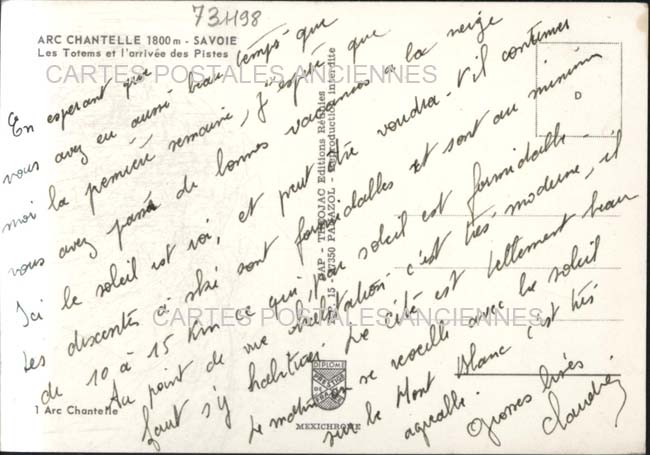 731198
ARC CHANTELLE 1800 m - SAVOIE
Les Totems et l'arrivée des Pistes
CARTES POSTALES ANCIENNES
En esperant que
vous avez eu aussi beau temps que
moi la première semaine, j'espère que
vous avez passé de bonnes vacances à la neige
Ici le soleil est roi, et peut être voudra-t'il continuer
Les descentes à ski sont formidables et sont au minimum
de 10 à 15 Km ce qui, au soleil est formidable.
Au point de vue habitation c'est très moderne, il
faut s'y habituer. Le Côté est tellement beau
Le matin se réveille avec le soleil
sur le Mont Blanc c'est très
agréable.
Grosses bises
Claudie
D
PAP - THEOJAC Editions Réunies
15 - 87350 PANAZOL - Reproduction interdite
CARTES POSTALES ANCIENNES
1 Arc Chantelle
DIPLOME
PRESTIGE
MEXICHROME